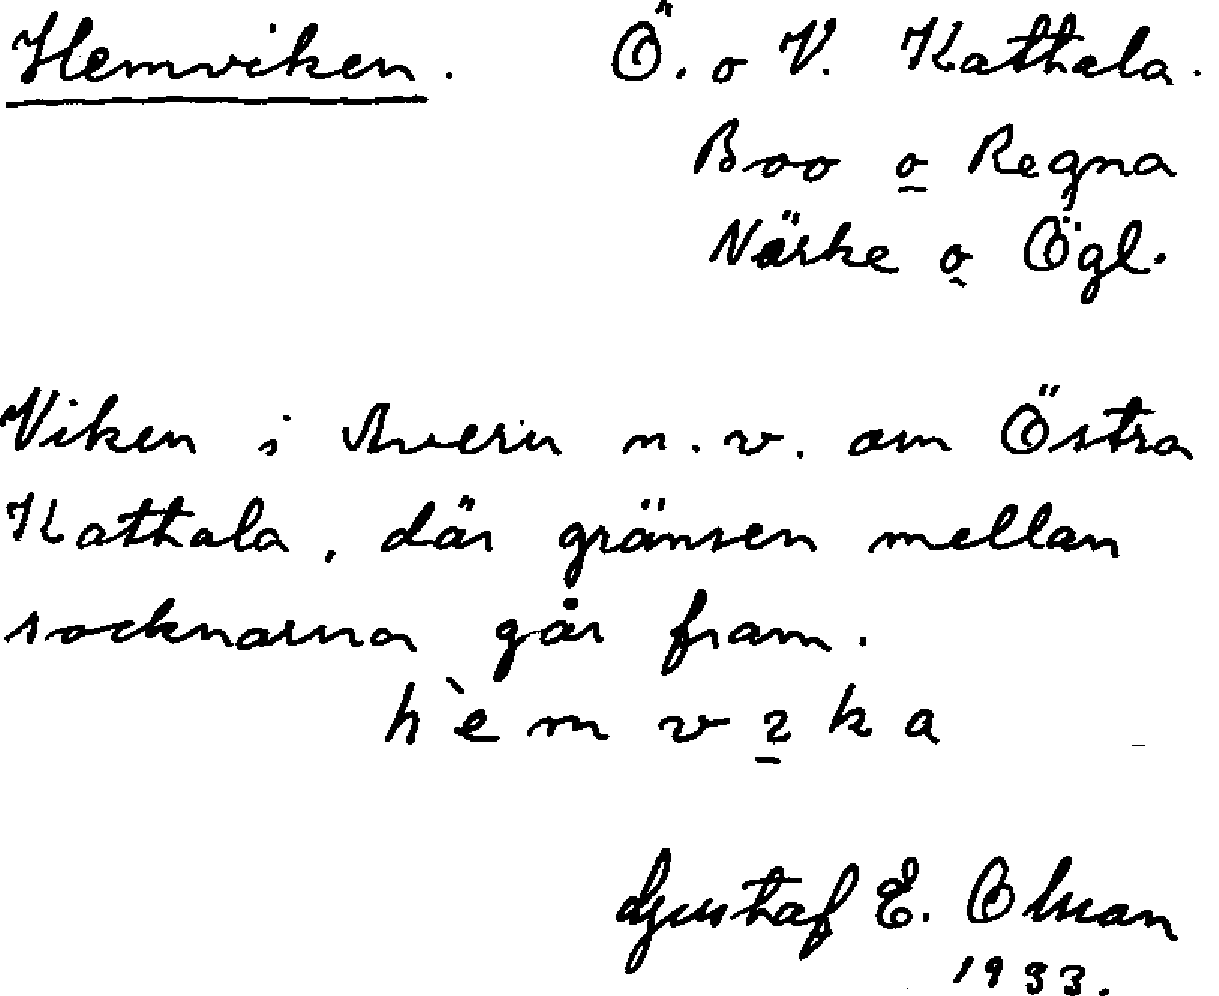 Hemviken. Ö. o V. Kathala.
Boo o Regna
Närke o Ögl.
Viken i Avern n.v. om Östra
Kathala, där gränsen mellan
socknarna går fram.
h`emvıka
Gustaf E. Olsson
1933.